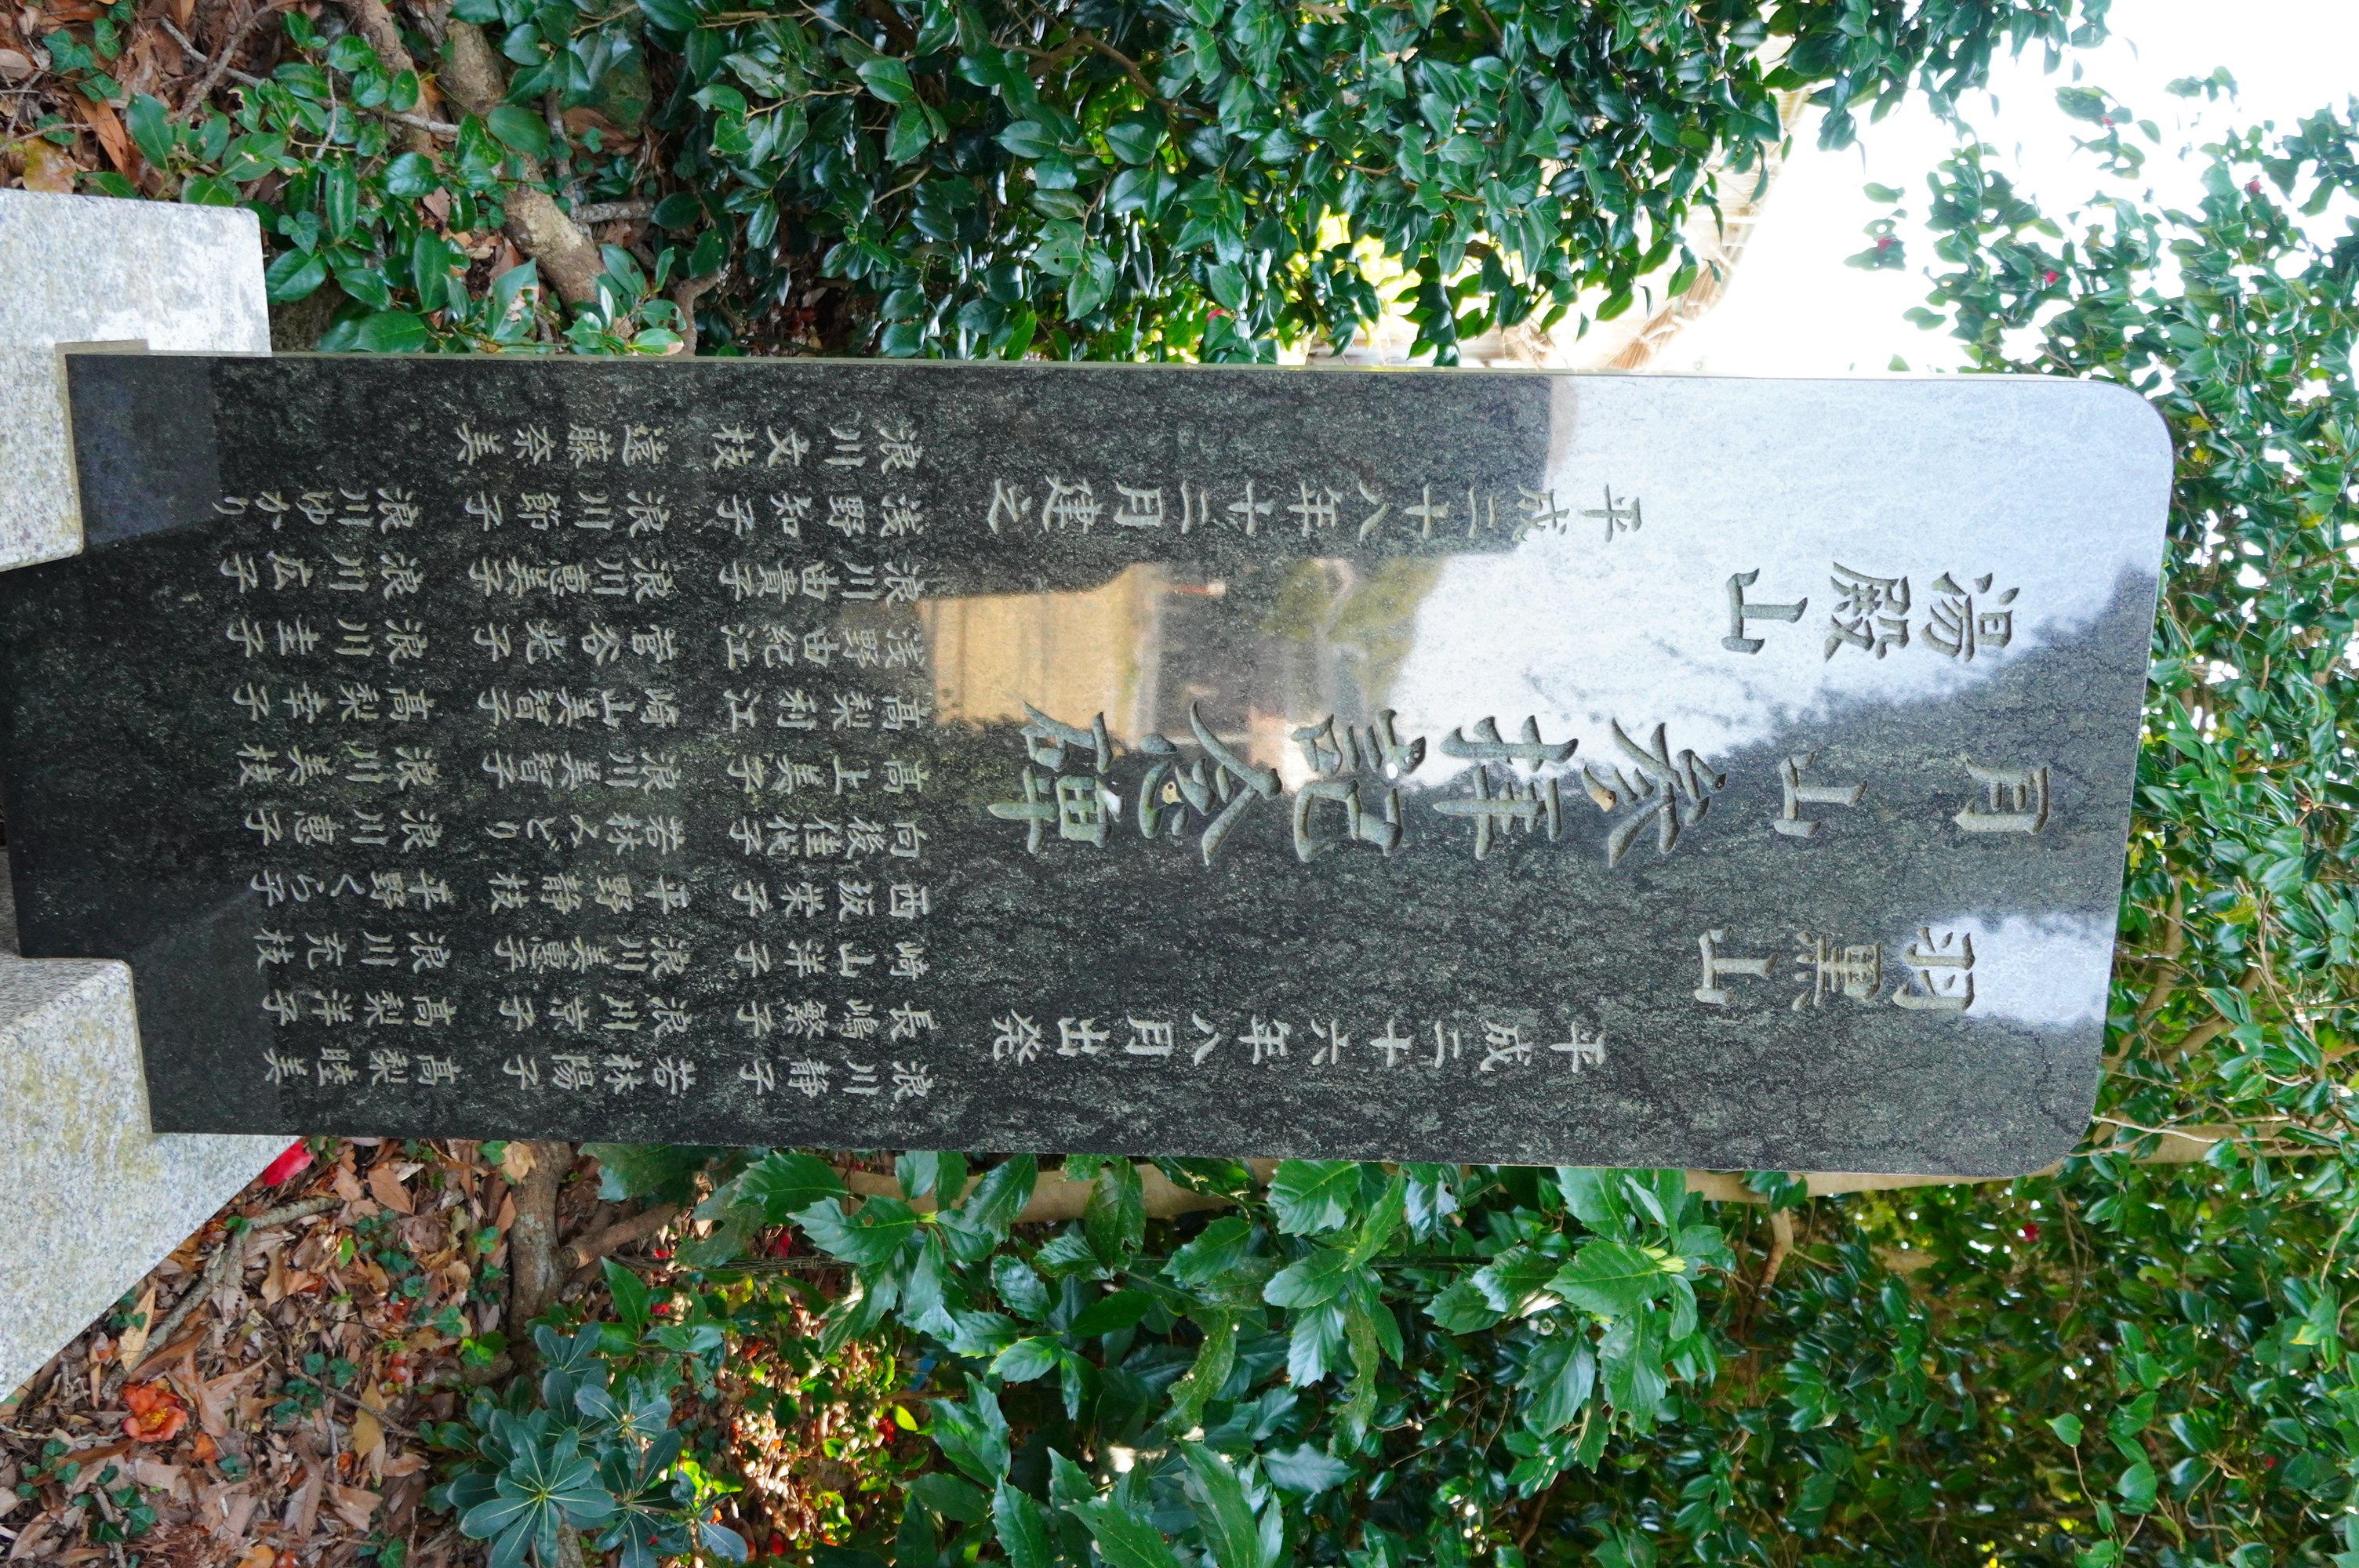 平成二十六年八月出発
羽黒山
月山
参拝記念碑
湯殿山
平成二十八年十二月建之
浪川静子
長嶋繁子
崎山洋子
西坂栄子
向後佳代子
高上美子
高梨利江
浅野由紀江
浪川由貴子
浅野知子
浪川文枝
若林陽子
浪川京子
浪川美恵子
平野静枝
若林みどり
浪川美智子
崎山美智子
菅谷光子
浪川恵美子
浪川節子
遠藤奈美
高梨睦美
高梨洋子
浪川允枝
平野くら子
浪川恵子
浪川美枝
高梨幸子
浪川圭子
浪川広子
浪川ゆかり